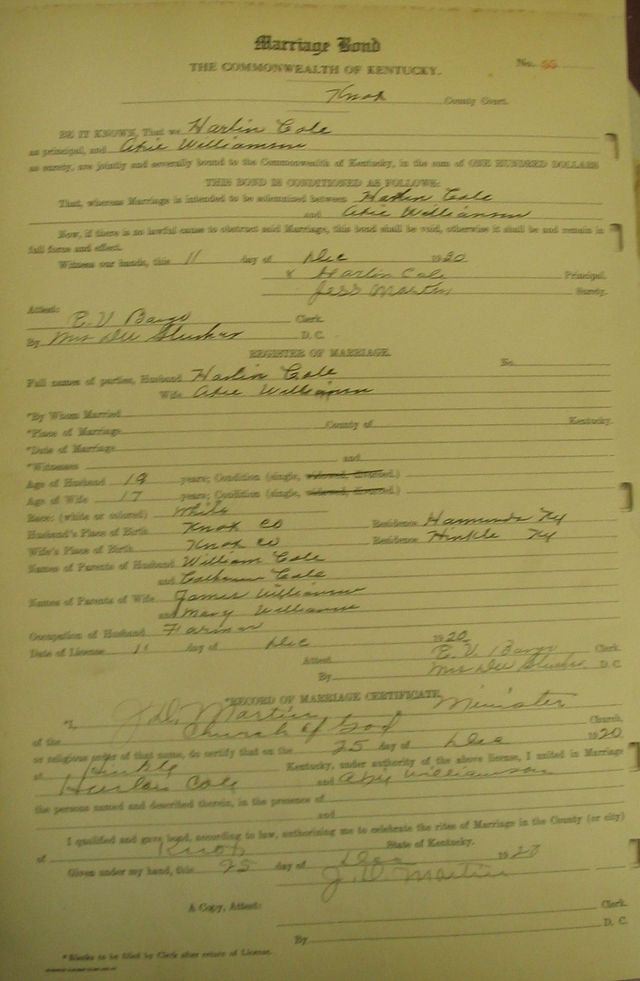 Marriage Bond
THE COMMONWEALTH OF KENTUCKY.
No.
Knox County Court.
BE IT KNOWN, That we Harlin Cole
as principal, and Akie Williamson
as surety, are jointly and severally bound to the Commonwealth of Kentucky, in the sum of ONE HUNDRED DOLLARS
THIS BOND IS CONDITIONED AS FOLLOWS:
That, whereas Marriage is intended to be solemnized between Harlin Cole
and Akie Williamson
Now, if there is no lawful cause to obstruct said Marriage, this bond shall be void, otherwise it shall be and remain in
full force and effect.
Witness our hands, this 11 day of Dec 1920
x Harlin Cole Principal.
Jess Martin Surety.
Attest:
Clerk.
By Mrs D. C.
REGISTER OF MARRIAGE.
No.
Full names of parties, Husband Harlin Cole
Wife Akie Williamson
*By Whom Married
*Place of Marriage County of Kentucky.
*Date of Marriage
*Witnesses and
Age of Husband 19 years; Condition (single, widowed, divorced.)
Age of Wife 17 years; Condition (single, widowed, divorced.)
Race: (white or colored) White
Husband's Place of Birth Knox Co Residence Hammonds Ky
Wife's Place of Birth Knox Co Residence Hinkle Ky
Names of Parents of Husband William Cole
and Cole
Names of Parents of Wife James Williamson
and Mary Williamson
Occupation of Husband Farmer
Date of License 11 day of Dec 1920
Attest Clerk.
By Mrs D. C.
*RECORD OF MARRIAGE CERTIFICATE.
*I, J. D. Martin Minister
of the Church of God Church,
or religious order of that name, do certify that on the 25 day of Dec 1920
at Hinkle Kentucky, under authority of the above license, I united in Marriage
Harlon Cole and Williamson
the persons named and described therein, in the presence of
and
I qualified and gave bond, according to law, authorizing me to celebrate the rites of Marriage in the County (or city)
of Knox State of Kentucky.
Given under my hand, this 25 day of Dec 1920
J. D. Martin
A Copy, Attest:
Clerk.
By D. C.
*Blanks to be filled by Clerk after return of License.